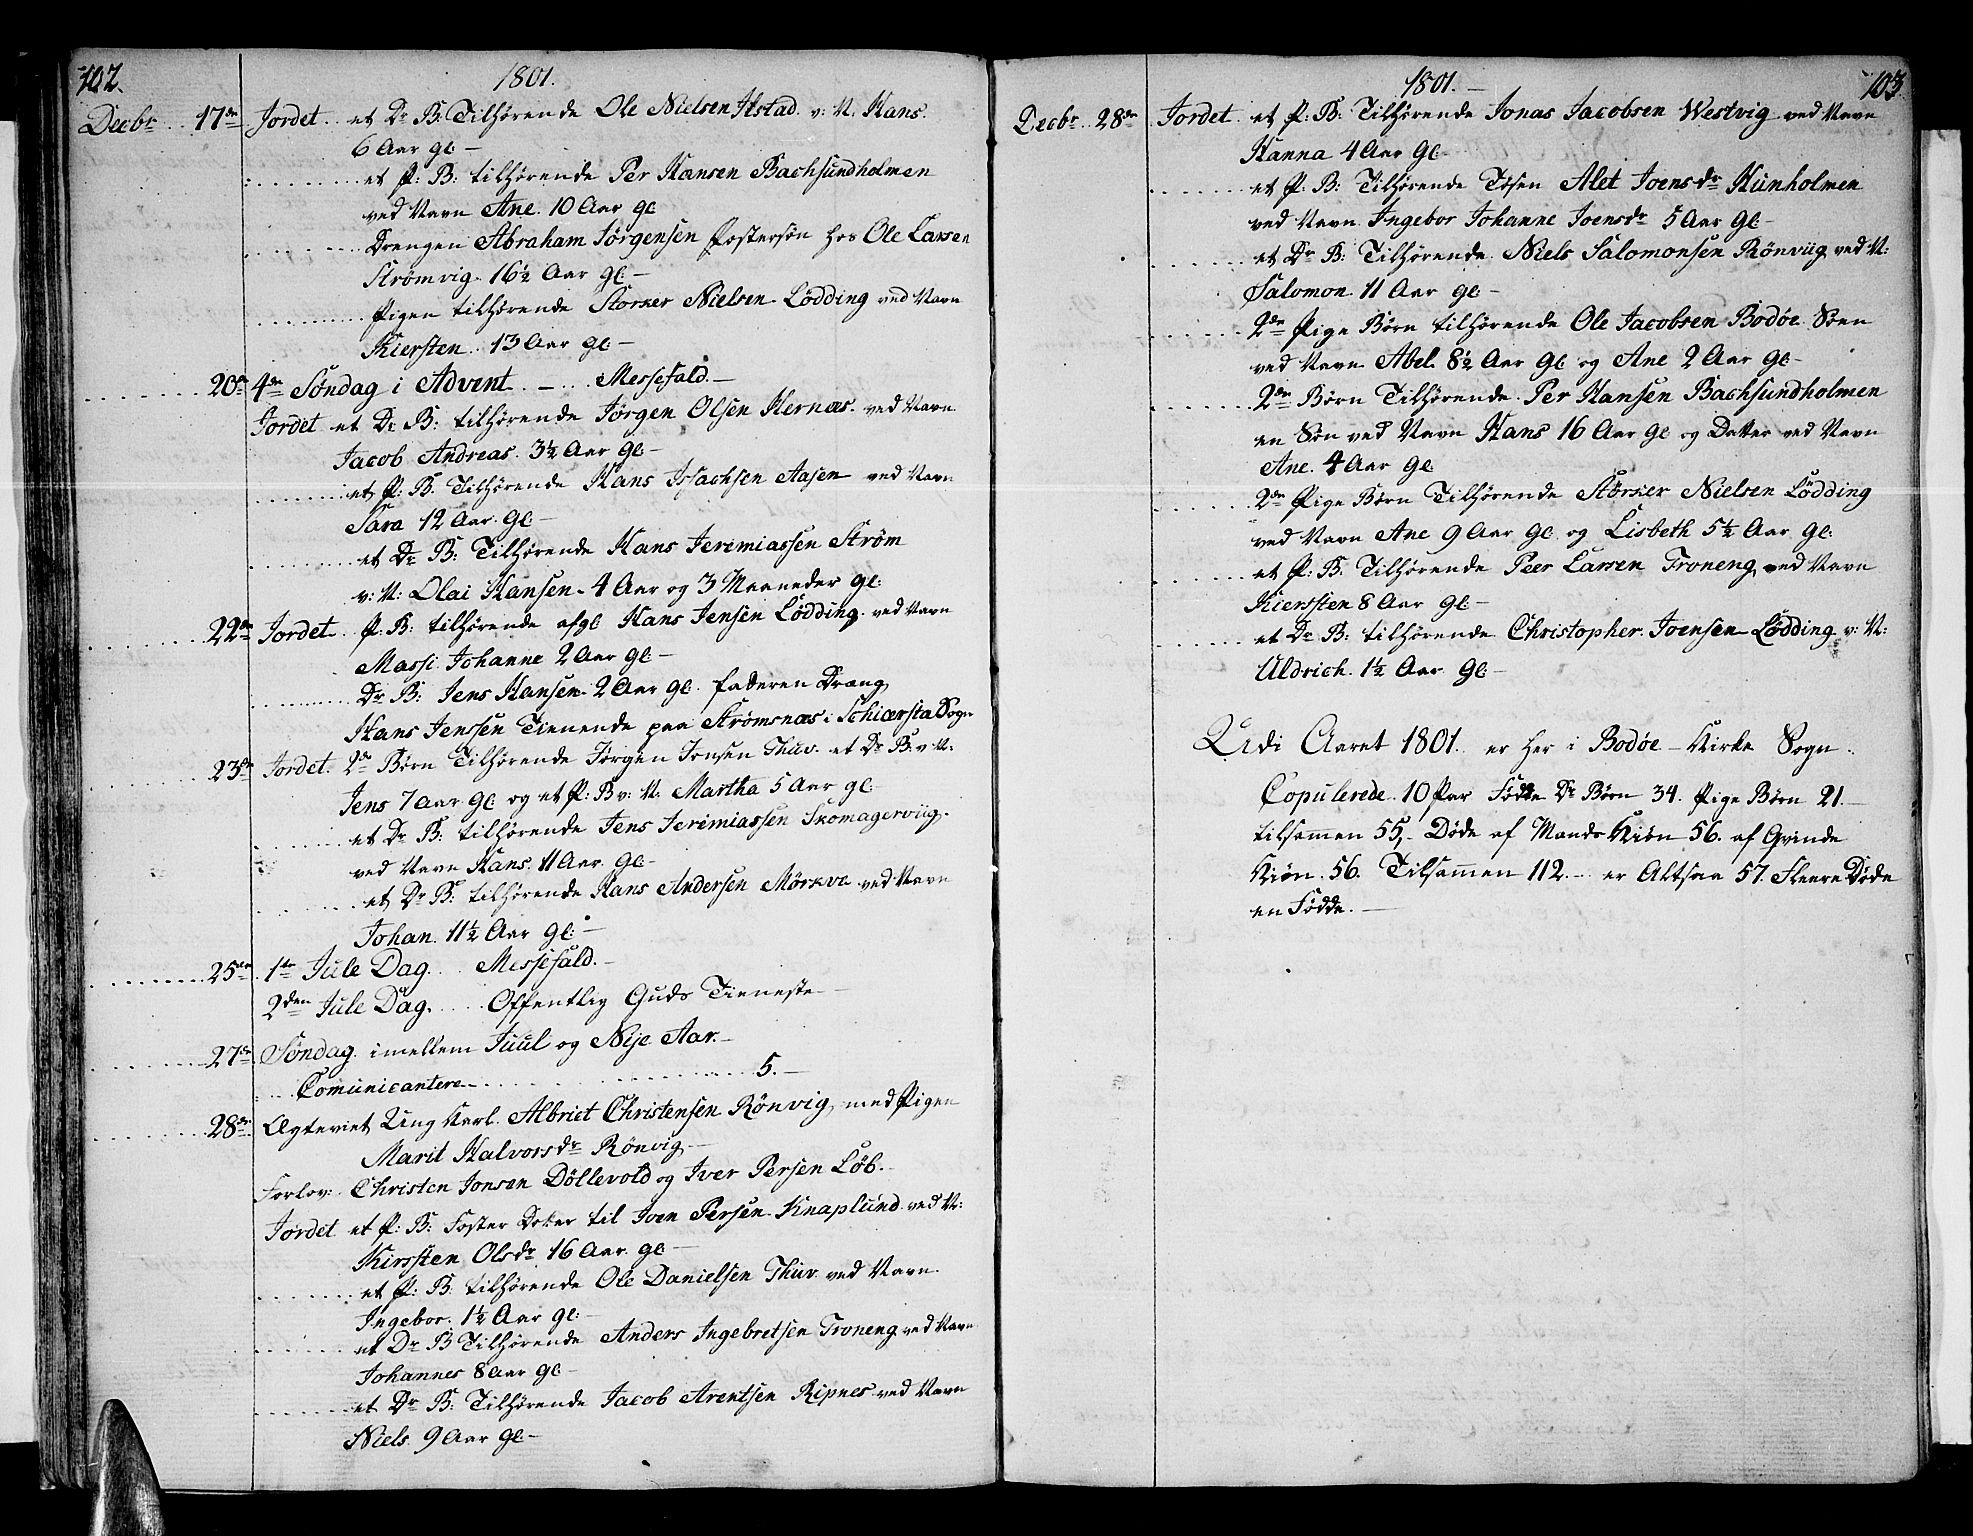 102.
1801.
Decbr. 17de Jordet et Dr. B. Tilhørende Ole Nielsen Ilstad v: N. Hans.
6 Aar gl: —
et P: B: tilhørende Per Hansen Bachsundholmen
ved Navn Ane. 10 Aar gl
Drengen Abraham Jørgensen fostersøn hos Ole Larsen
Strømvig. 16½ Aar gl: —
Pigen tilhørende Storker Nielsen Lödding ved Navn
Kiersten. 13 Aar gl —
20de 4de Søndag i Advent. — Messefald. —
Jordet et Dr. B: tilhørende Jörgen Olsen Hernæs. ved Navn
Jacob Andreas. 3½ Aar gl —
et P: B. Tilhørende Hans Isachsen Aasen ved Navn
Sara 12 Aar. gl —
et Dr. B: Tilhørende Hans Jeremiassen Strøm
v: N: Olai Hansen. 4 Aar og 3 Maaneder gl:
22de Jordet P: B: tilhørende afgl Hans Jensen Lödding. ved Navn
Massi Johanne 2 Aar gl: —
Dr. B: Jens Hansen. 2 Aar gl. faderen Dræng
Hans Jenssen Tienende paa Strømsnæs i Schiersta Sogn
23de Jordet. 2de Børn Tilhørende Jørgen Jonsen Thuv. et Dr. B: v N:
Jens 7 Aar gl: og et P: B v: N: Martha 5 Aar gl: —
et Dr. B: tilhørende Jens Jeremiassen Skomagerviig.
ved Navn Hans. 11 Aar. gl —
et Dr. B: tilhørende Hans Andersen Mörkve ved Navn
Johan. 11½ Aar gl: —
25de 1te Jule Dag. Messefald. —
2den Jule Dag. Offentlig Guds Tieneste —
27de Søndag imellem Juul og Nije Aar. —
Comunicantere 5. —
28de Ægteviet Ung Karl. Albriet Christensen Rönvig, med Pigen
Marit Halvorsdr. Rönvig —
Forlov: Christen Jonsen Döllevold og Iver Persen Löb. —
Jordet et P: B: Foster Doter til Joen Persen Knaplund ved N:
Kirssten Olsdr. 16 Aar gl —
et P: B: tilhørende Ole Danielsen Thuv. ved Navn.
Ingebor. 1½ Aar gl: —
et Dr. B Tilhørende Anders Ingebretsen Troneng ved Navn
Johannes 8 Aar gl —
et Dr. B: Tilhørende Jacob Arentsen Ripnes ved Navn
Niels. 9 Aar gl —
103
1801. —
Decbr. 28de Jordet et P: B: Tilhørende Jonas Jacobsen Westvig ved Navn
Hanna 4 Aar gl —
et P: B: Tilhørende Tøsen Alet Joensdr. Hunholmen
ved Navn Ingebor Johanne Joensdr. 5 Aar gl —
et Dr. B: Tilhørende Niels Salomonsen Rönviig ved N:
Salomon 11 Aar gl —
2de Pige Børn tilhørende Ole Jacobsen Bodöe Soen
ved Navn Abel. 8½ Aar gl og Ane 2 Aar gl —
2de Børn Tilhørende Per Hansen Bachsundholmen
en Søn ved Navn Hans 16 Aar gl og Datter ved Navn
Ane. 4 Aar gl
2de Pige Børn Tilhørende Störker Nielsen Lödding
ved Navn Ane 9 Aar gl. og Lisbeth 5½ Aar gl:
et P: B: Tilhørende Peer Larsen Troneng, ved Navn
Kierssten 8 Aar gl —
et Dr. B: tilhørende Christopher Joensen Lödding v: N:
Uldrich. 1½ Aar gl —
Udi Aaret 1801. er her i Bodöe — Kirke Sogn.
Copulerede. 10 Par Födte Dr. Børn 34. Pige Børn 21. —
tilsamen 55, — Døde af Mands Kiön 56. af Qvinde
Kiön. 56. Tilsamen 112. — er Altsaa 57. fleere Døde
en Födde. —